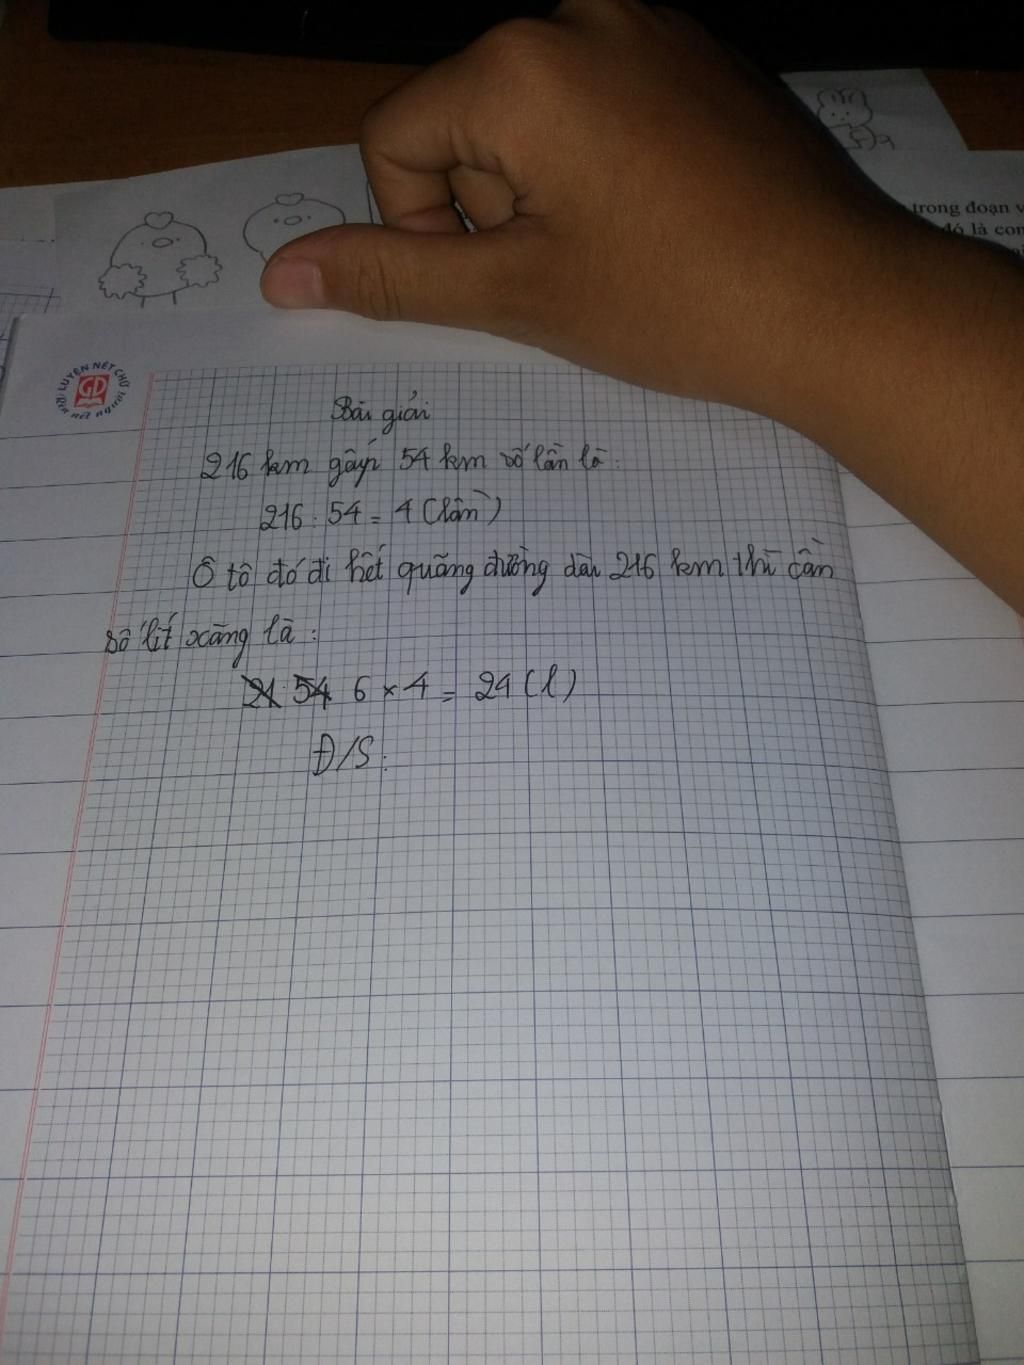 trong đoạn v
đó là con
LUYỆN NÉT CHỮ
GD
Rèn nết người
Bài giải
216 km gấp 54 km số lần là:
216 : 54 = 4 (lần)
Ô tô đó đi hết quãng đường dài 216 km thì cần
số lít xăng là :
21 54 6 × 4 = 24 (l)
Đ/S: